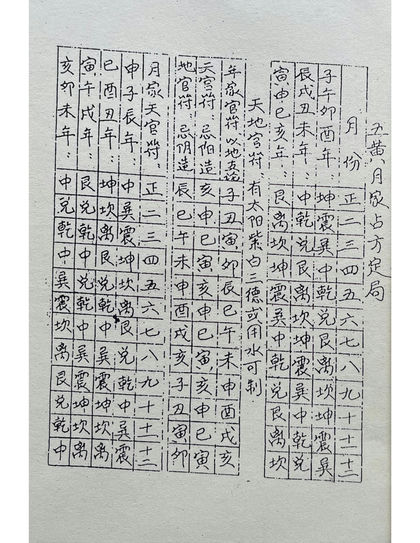 五黄月家占方定局
月份 正 二 三 四 五 六 七 八 九 十 十一 十二
子午卯酉年： 坤 震 巽 中 乾 兑 艮 離 坎 坤 震 巽
辰戌丑未年： 中 乾 兑 艮 離 坎 坤 震 巽 中 乾 兑
寅申巳亥年： 艮 離 坎 坤 震 巽 中 乾 兑 艮 離 坎
天地官符 有太阳紫白三德或用水可制
年家官符 以地支論 子 丑 寅 卯 辰 巳 午 未 申 酉 戌 亥
天官符 忌阳造 亥 申 巳 寅 亥 申 巳 寅 亥 申 巳 寅
地官符 忌阴造 辰 巳 午 未 申 酉 戌 亥 子 丑 寅 卯
月家天官符： 正 二 三 四 五 六 七 八 九 十 十一 十二
申子辰年： 中 巽 震 坤 坎 離 艮 兑 乾 中 巽 震
巳酉丑年： 坤 坎 離 艮 兑 乾 中 巽 震 坤 坎 離
寅午戌年： 艮 兑 乾 中 兑 乾 中 巽 震 坤 坎 離
亥卯未年： 中 兑 乾 中 巽 震 坎 離 艮 兑 乾 中